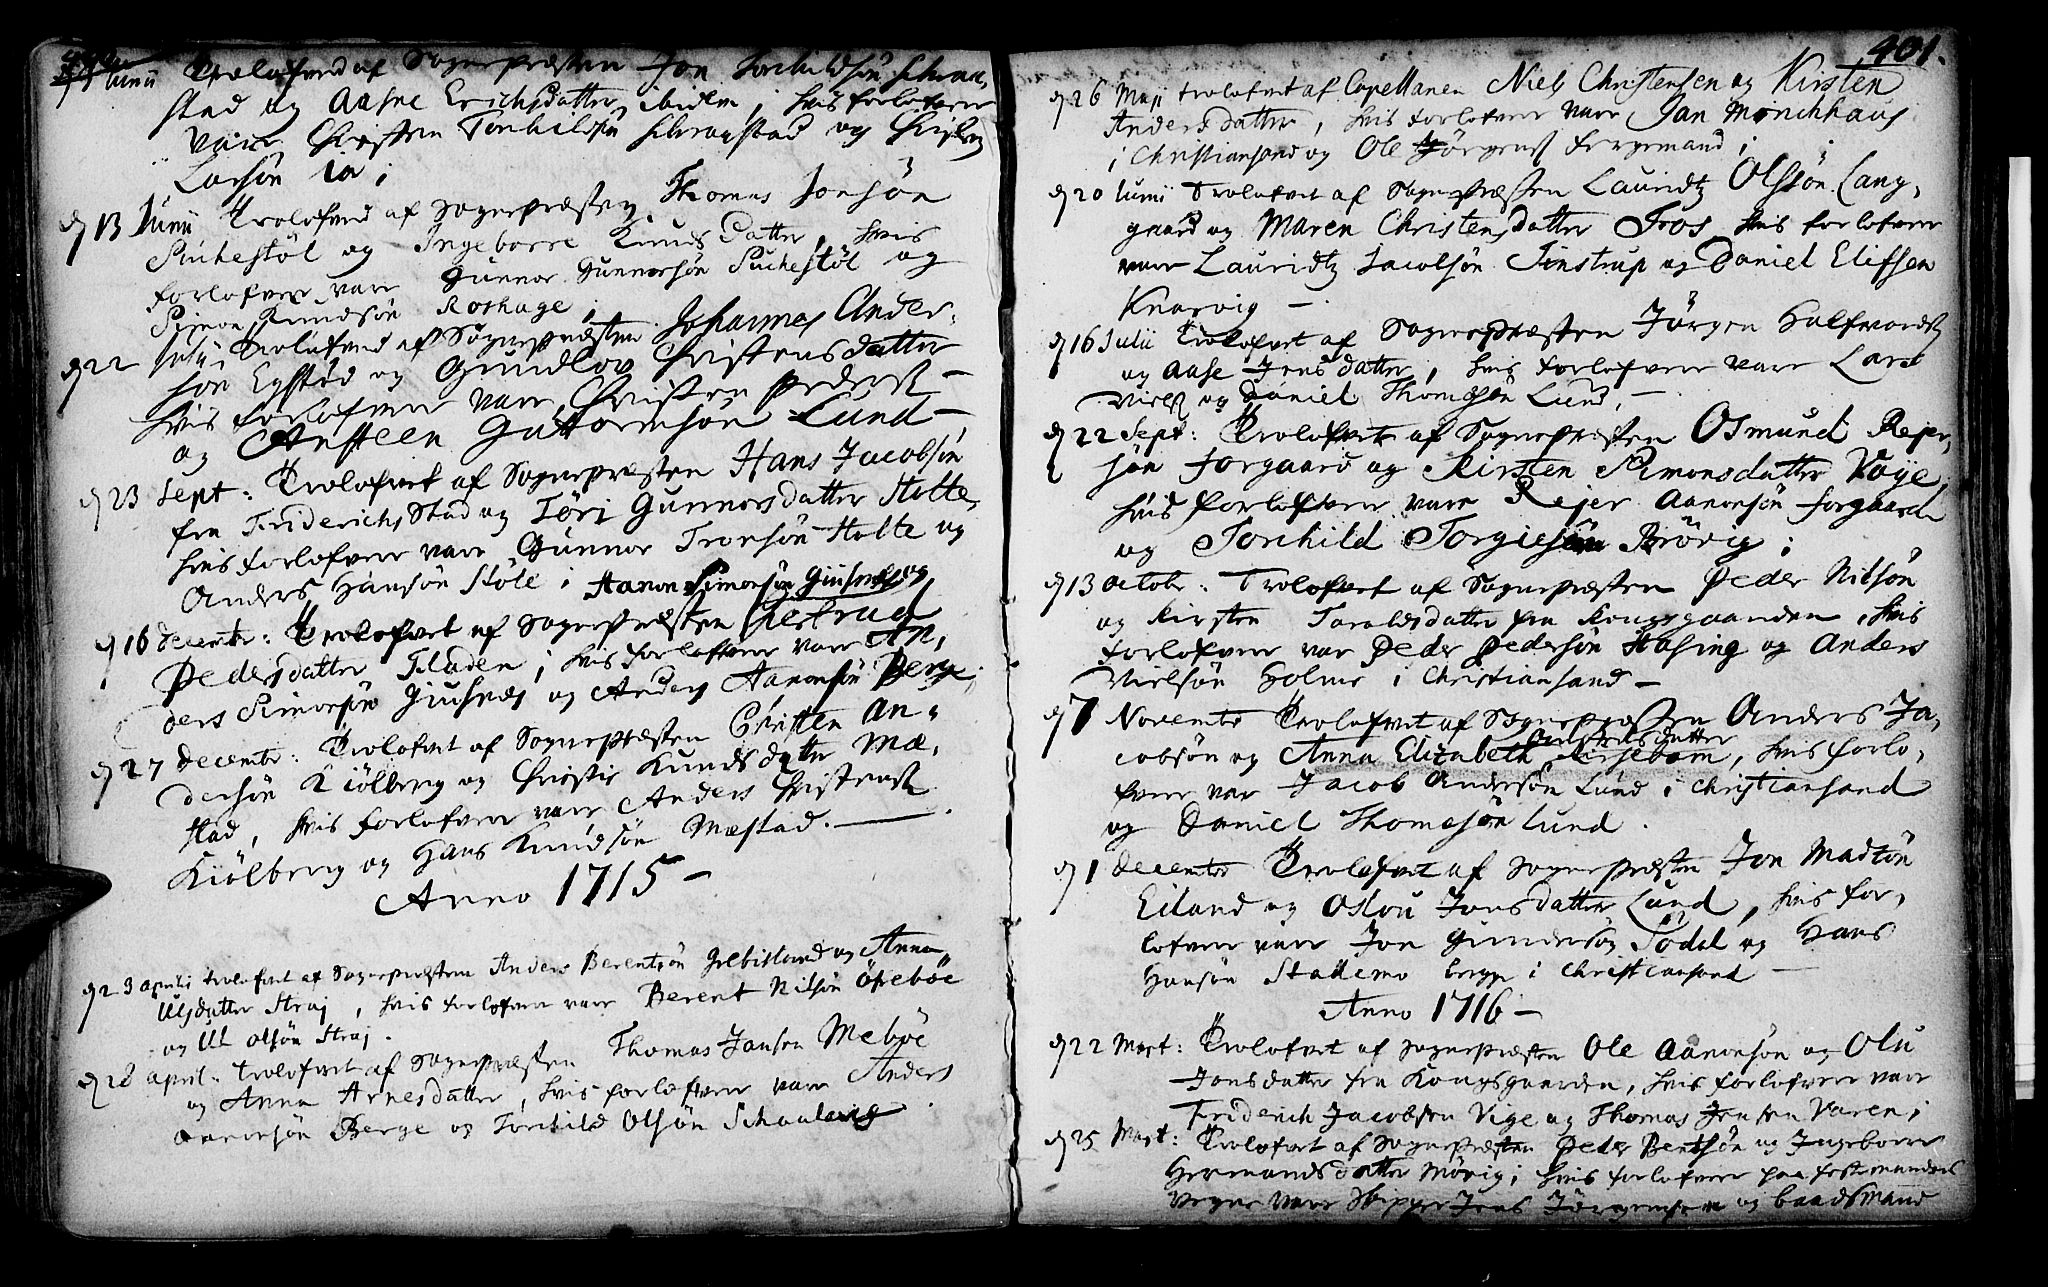 Junii Trolofved af Sognepræsten Jon Torchildsøn Schrau,
stad og Aasne Erichsdatter, ibidem, hvis forlofvere
vare Christen Torchildsøn Schraustad og Christen
Larsøn
d 13 Junii Trolofved af Sognepræsten Thomas Jonsøn
Suchestøl og Ingeborre Knuds Datter, hvis
forlofvere vare Gunnor Gunnersøn Suchestøl og
Simon Knudsøn Roshage,
d 22 Julii Trolofved af Sognepræsten Johannes Ander-
søn Egstød og Gundlov Christensdatter
hvis forlofvere vare Christen Peders:
og Ansteen Guttormsøn Lund -
d 23 Sept: Trolofvet af Sognepræsten Hans Jacobsøn
fra Friderichs Stad og Töri Gunnorsdatter Holte,
hvis forlofvere vare Gunnor Tronsøn Holte og
Anders Hansøn Støle i
d 16 Decembr: Trolofvet af Sognepræsten Aanon Simonsøn Giusnes og Gertrud
Pedersdatter Fladen, hvis forlofvere vare An,
ders Simonsøn Giusnes og Anders Aanonsøn Berge
d 27 Decembr: Trolofvet af Sognepræsten Christen An-
dersøn Kiölberg og Christie Knuds datter Mæ,
stad, hvis forlofvere vare Anders Christens:
Kiölberg og Hans Knudsøn Mæstad. -
Anno 1715 -
d 23 Aprilis trolofvet af Sognepræsten Anders Berentsøn Grebistand og Anna
Ulsdatter Straj, hvis forlofvere vare Berent Nilsøn Öyebøe
og Ul Olsøn Straj.
d 28 April: trolofvet af Sognepræsten Thomas Jansen Mebøe
og Anna Arnesdatter, hvis forlofvere vare Anders
Aanonsøn Berge og Torchild Olsøn Schaulevig
401.
d 26 Maji trolofvet af Capellanen Niels Christensen og Kirsten
Andersdatter, hvis forlofvere vare Jan Mönchhaus
i Christiansand og Ole Jörgens: fergemand,
d 20 Junii Trolofvet af Sognepræsten Lauridtz Olssön Lang,
gaard og Maren Christensdatter Fros, hvis forlofvere
vare Lauridtz Jacobsøn Tinstrup og Daniel Elifsen
Knarvig -
d 16 Julii Trolofvet af Sognepræsten Jörgen Halfvords:
og Aase Jonsdatter, hvis forlofvere vare Lars
Niels: og Daniel Thomesøn Lund, -
d 22 Sept: Trolofvet af Sognepræsten Osmund Rejer,
søn Forgaard og Kirsten Simonsdatter Voije,
hvis forlofvere vare Rejer Aanonsøn Forgaard
og Torchild Torgiesøn Brövig,
d 13 Octobr: Trolofvet af Sognepræsten Peder Nilsøn
og Kirsten Taraldsdatter fra Kongsgaarden, hvis
forlofvere var Peder Pedersøn Hasing og Anders
Nielsøn Holme i Christiansand -
d 7 Novembr Trolofvet af Sognepræsten Anders Ja,
cobsøn og Anna Elizabeth Kirsebom, hvis forlo-
fvere var Jacob Andersøn Lund i Christiansand
og Daniel Thomesøn Lund.
d 1 Decembr Trolofvet af Sognepræsten Jon Madsøn
Eiland og Oslou Jonsdatter Lund, hvis for,
lofvere vare Jon Gundersøn Tödal og Hans
Hansøn Stademo borger i Christiansand -
Anno 1716 -
d 22 Mart: Trolofvet af Sognepræsten Ole Aanonsøn og Olu
Jonsdatter fra Kongsgaarden, hvis forlofvere vare
Friderich Jacobsen Vige og Thomas Jensen Varen,
d 25 Mart: Trolofvet af Sognepræsten Peder Bentsøn og Ingeborre
Hermandsdatter Mövig, hvis forlofvere paa festemandens
Vegne vare Skipper Jens Jörgensen og baadsmand